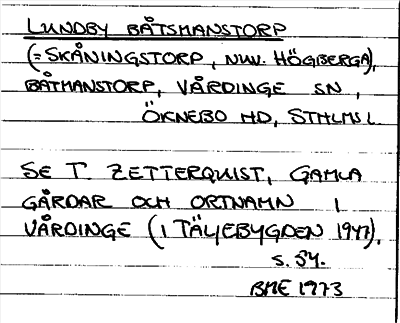 LUNDBY BÅTSMANSTORP
(= SKÅNINGSTORP, NUV. HÖGBERGA),
BÅTMANSTORP, VÅRDINGE SN,
ÖKNEBO HD, STHLMS L.
SE T. ZETTERQUIST, GAMLA
GÅRDAR OCH ORTNAMN I
VÅRDINGE (I TÄLJEBYGDEN 1947),
S. 54.
BME 1973